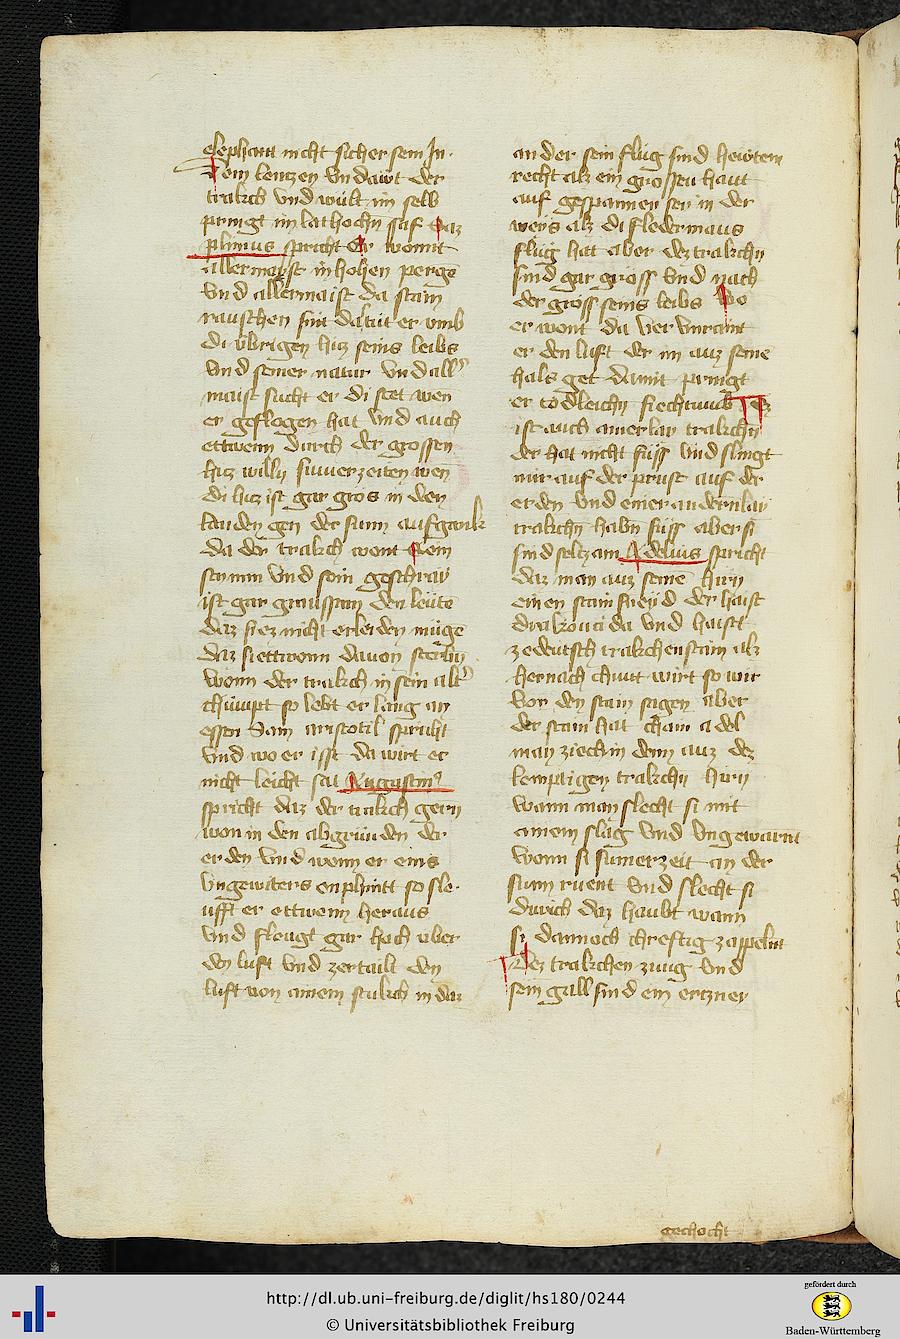 elephant nicht sicher sein In
dem lentzen vnd dawt der
trakch vnd wült im selb
pringt im lathochn saf Daz
plinius spricht Er wonnt
allermayst in hohen perge
vnd allermaist da stain
rauschen sint datut er vmb
di vbrigen hicz seins leibs
vnd seiner natur vnd all
maist sucht er di stet wen
er geflogen hat vnd auch
ettwenn durch der grossen
hicz willn sumerzeiten wen
di hicz ist gar gros in den
landen gen der sunn aufgank
da der trakch wont Sein
stymm vnd sein geschray
ist gar graussam den leute
daz siez nicht erleiden müge
daz si ettwenn davon sterbn
wenn der trakch in sein alt
chümpt so lebt er lang an
essen Sam aristotil spricht
vnd wo er isst da wirt er
nicht leicht sat Augustin
spricht daz der trakch gern
won in den abgrunden der
erden vnd wenn er eins
vngewiters enphintt so sle
ufft er ettwenn heraus
vnd fleugt gar hoch vber
den luft vnd zertailt den
luft von ainem strakch in daz
ander sein flüg sind hewtein
recht alz ein grossen haut
auf gespannen sey in der
weys alz di fledermaus
flüg hat aber dez trakchn
sind gar gross vnd nach
der gröss seins leibs Wo
er wont da ver vnraint
er den luft der im auz seine
hals get damit pringt
er tödleichn siechtumb Ez
ist auch ainerlay trakchn
der hat nicht füss vnd slingt
nur auf der prust auf der
erden vnd einer andernlay
trakchn habn füss aber si
sind seltzam Adelius spricht
daz man auz seine hirn
einen stain sneyd der haist
drakonuida vnd haist
zedeutsch trakchenstain alz
hernach chunt wirt so wir
von den stain sagen aber
der stain hat chain adel
man ziech in denn auz dez
lemptigen trakchn hirn
wann man slecht si mit
ainem slag vnd vngewarnt
wenn si sumerzeit an der
sunn ruent vnd slecht si
durich daz haubt wann
si dannoch chreftig zappelnt
Dez trakchen zung vnd
sein gall sind ein ertzney
gechocht
http://dl.ub.uni-freiburg.de/diglit/hs180/0244
© Universitätsbibliothek Freiburg
gefördert durch
Baden-Württemberg